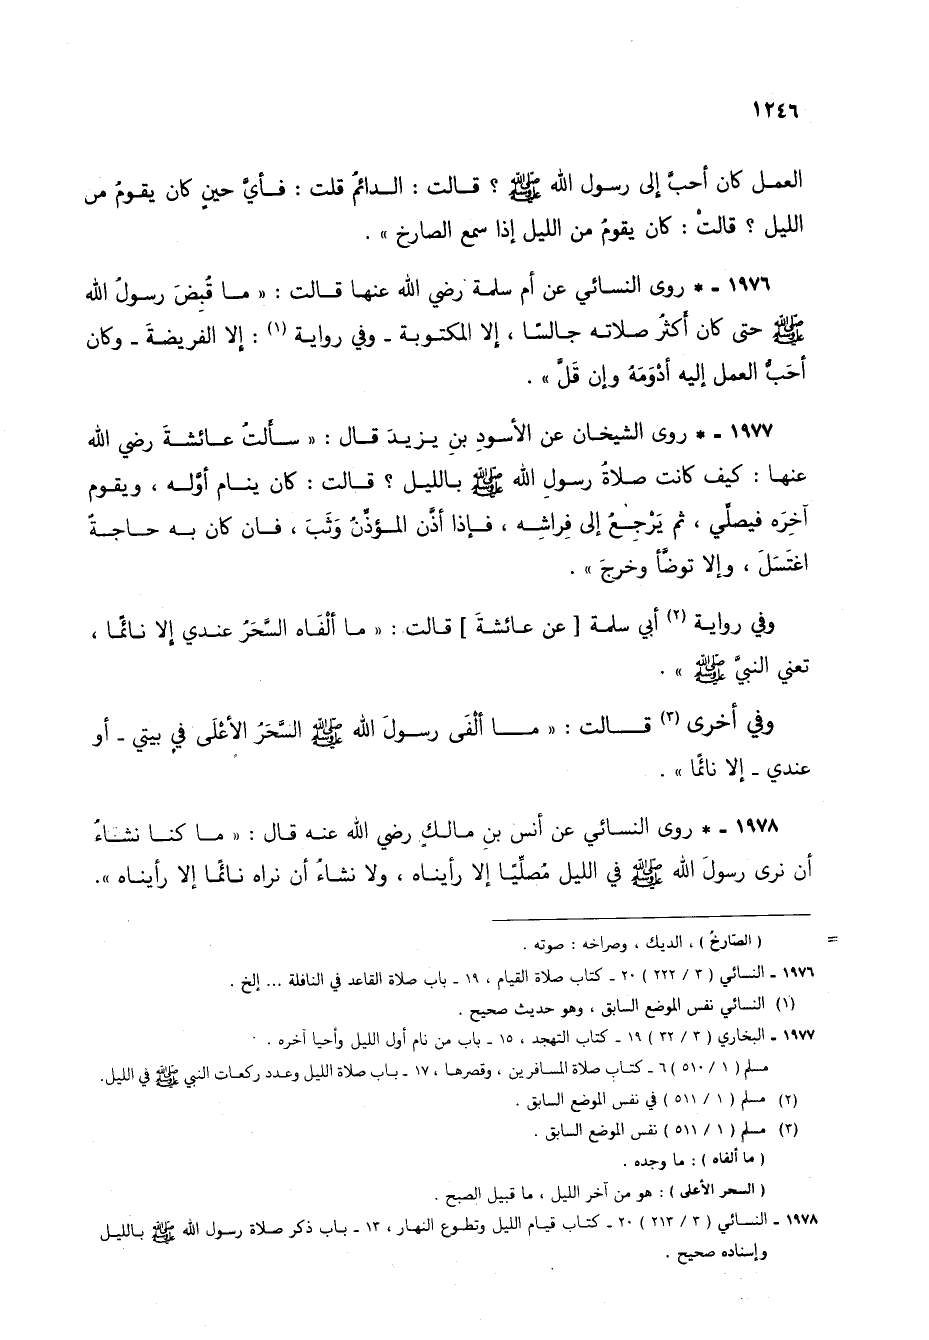 ١٢٤٦
العمـل كان أحبَّ إلى رسول الله ﷺ ؟ قـالت : الـدائمُ قلت : فـأيَّ حينٍ كان يقومُ من
الليل ؟ قالتْ : كان يقومُ من الليل إذا سمع الصارخ » .
١٩٧٦ - * روى النسائي عن أم سلمة رضي الله عنها قـالت : « مـا قُبِضَ رسولُ الله
ﷺ حتى كان أكثرُ صلاتـه جـالسًا ، إلا المكتـوبـة ـ وفي روايـة (١) : إلا الفريضـةَ ـ وكان
أحَبُّ العمل إليه أدْوَمَهُ وإن قَلَّ » .
١٩٧٧ - * روى الشيخـان عن الأسودِ بنِ يـزيـدَ قـال : « سـألتُ عـائشـةَ رضي الله
عنهـا : كيف كانت صلاةُ رسولِ الله ﷺ بـالليـل ؟ قـالت : كان ينـام أوَّلـه ، ويقـوم
آخِرَه فيصلِّي ، ثم يَرْجِـعُ إلى فِراشِـه ، فـإذا أذَّن المـؤذِّنُ وَثَبَ ، فـان كان بـه حـاجـةٌ
اغتَسَلَ ، وإلا توضَّأ وخرجَ » .
وفي روايـة (٢) أبي سلمة [ عن عـائشـةَ ] قـالت : « مـا ألْفَاه السَّحَرُ عنـدي إلا نـائمًـا ،
تعني النبيَّ ﷺ » .
وفي أخرى (٣) قـــالت : « مـــا ألْفَى رسـولَ الله ﷺ السَّحَرُ الأعْلَى في بيتي ـ أو
عندي ـ إلا نائمًا » .
١٩٧٨ - * روى النسـائي عن أنس بنِ مـالـكٍ رضي الله عنـه قـال : « مـا كنـا نشـاءُ
أن نرى رسولَ الله ﷺ في الليل مُصلِّيًا إلا رأينـاه ، ولا نشاءُ أن نراه نـائمًـا إلا رأينـاه ».
= ( الصّارخُ ) ، الديك ، وصراخه : صوته .
١٩٧٦ ـ النسائي ( ٣ / ٢٢٢ ) ٢٠ ـ كتاب صلاة القيام ، ١٩ ـ باب صلاة القاعد في النافلة ... إلخ .
(١) النسائي نفس الموضع السابق ، وهو حديث صحيح .
١٩٧٧ ـ البخاري ( ٣ / ٣٢ ) ١٩ ـ كتاب التهجد ، ١٥ ـ باب من نام أول الليل وأحيا آخره .
مسلم ( ١ / ٥١٠ ) ٦ ـ كتـاب صلاة المسافرين ، وقصرهـا ، ١٧ ـ بـاب صلاة الليل وعـدد ركعـات النبي ﷺ في الليل.
(٢) مسلم ( ١ / ٥١١ ) في نفس الموضع السابق .
(٣) مسلم ( ١ / ٥١١ ) نفس الموضع السابق .
( ما ألفاه ) : ما وجده .
( السحر الأعلى ) : هو من آخر الليل ، ما قبيل الصبح .
١٩٧٨ ـ النسائي ( ٣ / ٢١٣ ) ٢٠ ـ كتـاب قيـام الليل وتطـوع النهـار ، ١٣ ـ بـاب ذكر صلاة رسول الله ﷺ بـالليـل
وإسناده صحيح .